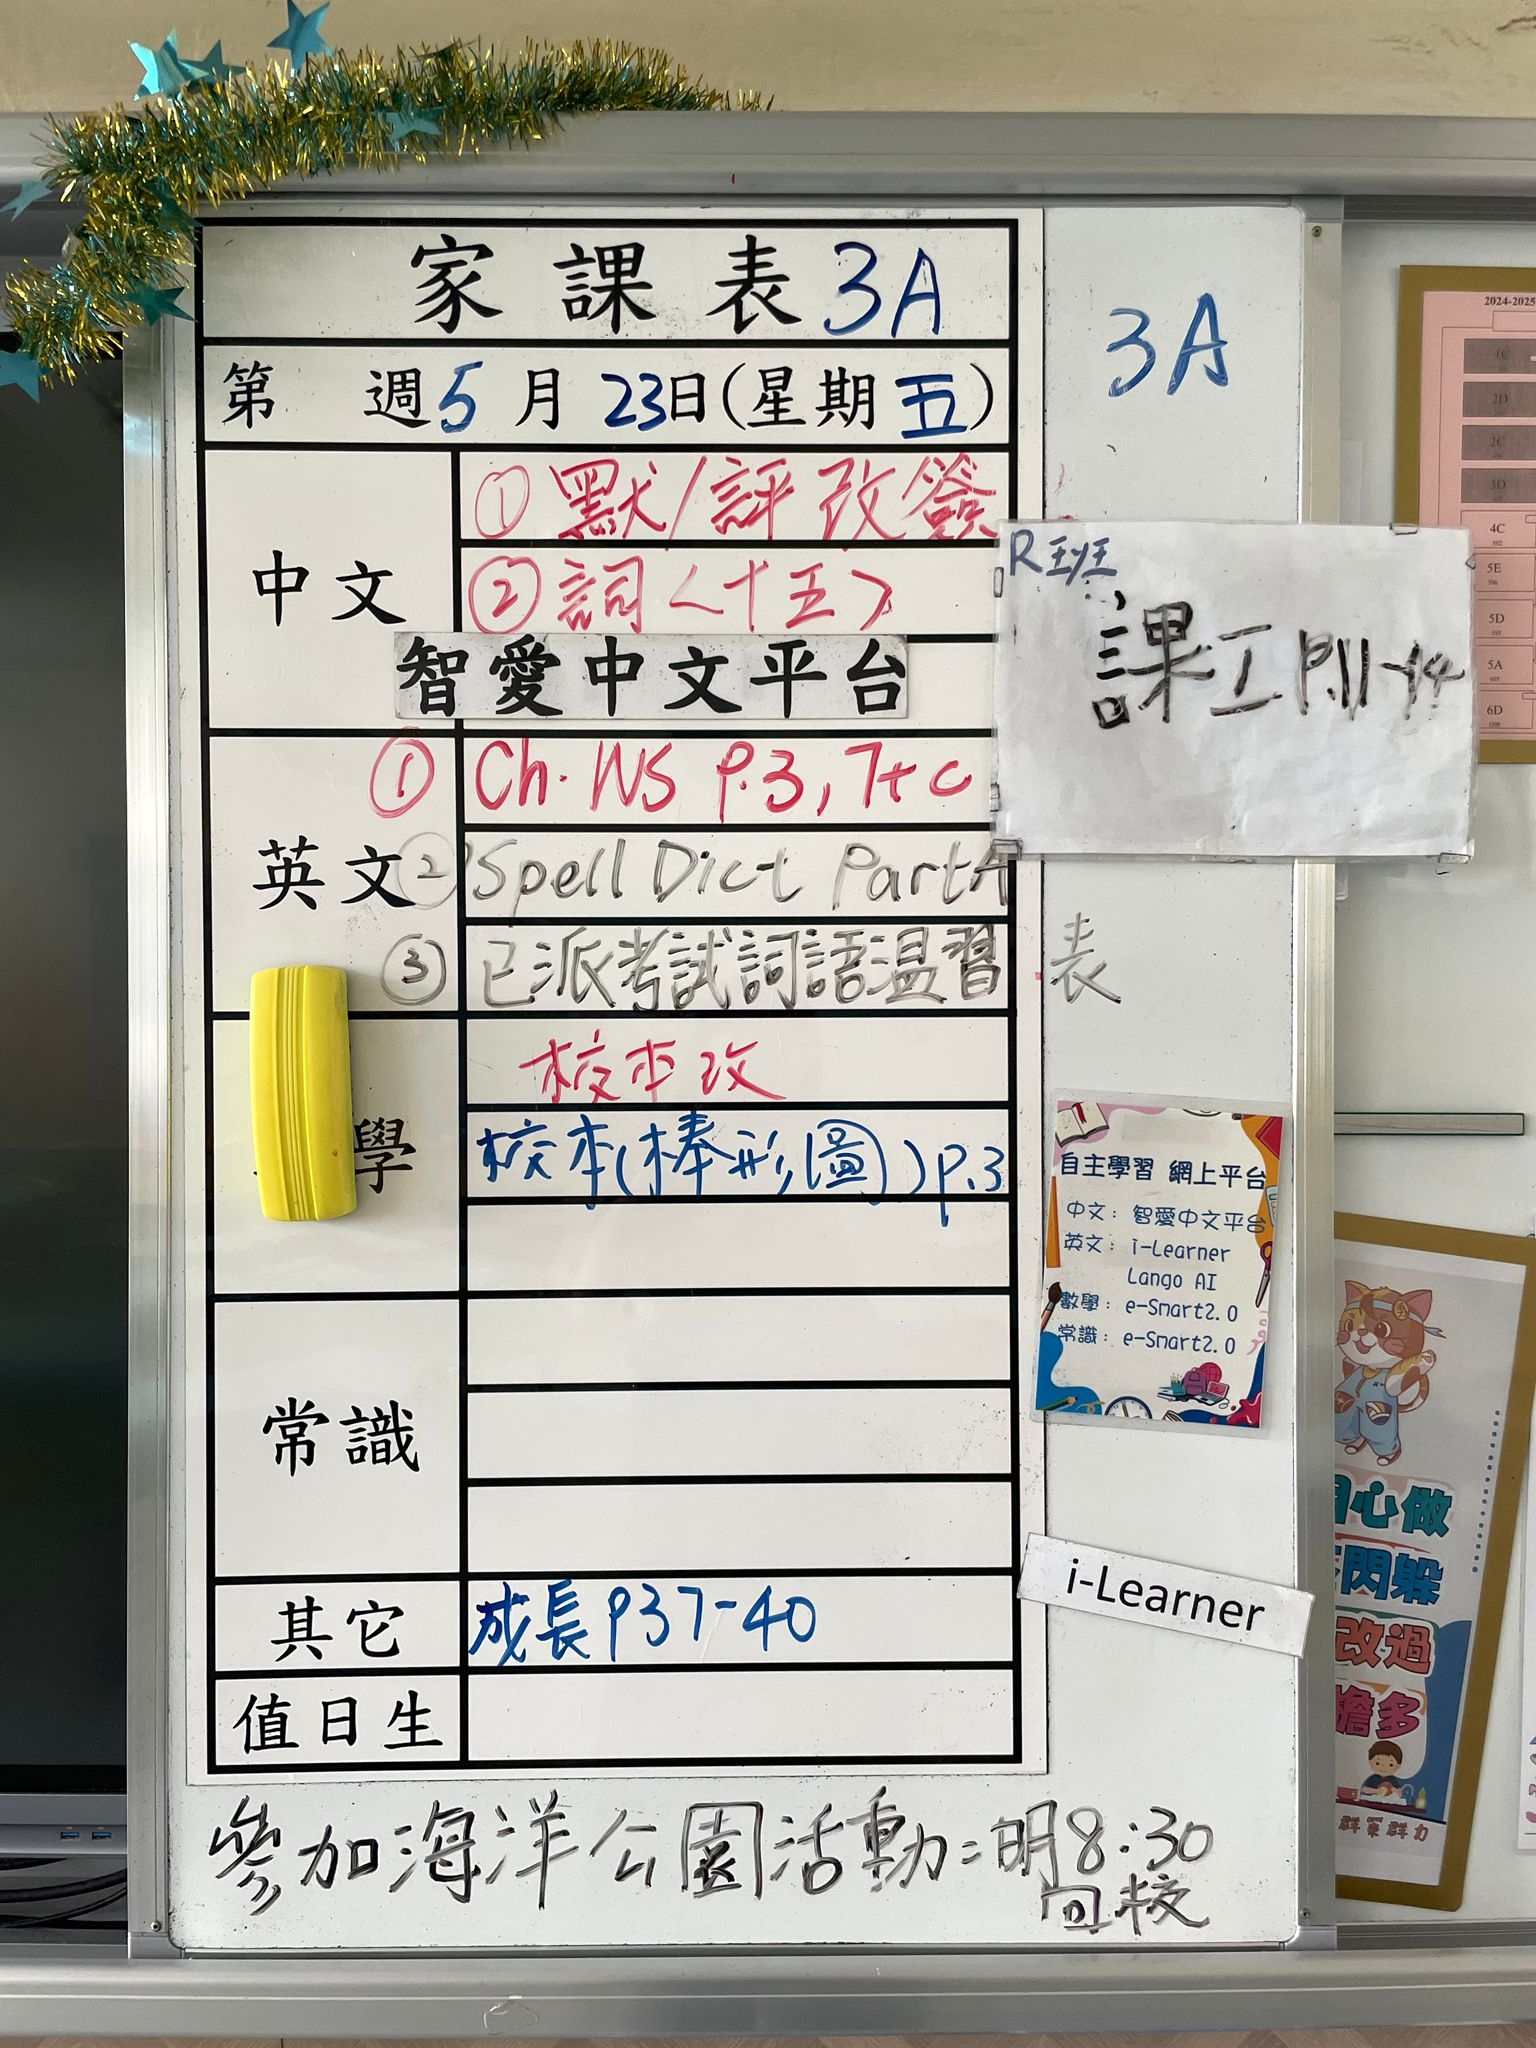 家課表 3A
3A
第 週 5 月 23 日(星期 五)
中文
① 默/評改簽
② 詞〈十五〉
智愛中文平台
R班
課工 P.11-14
英文
① Ch. WS P.3, 7+c
② Spell Dict Part A
③ 已派考試詞語温習表
學
校本改
校本(棒形圖) P.3
常識
其它
成長 P37-40
值日生
參加海洋公園活動:明8:30
回校
自主學習 網上平台
中文: 智愛中文平台
英文: i-Learner
Lango AI
數學: e-Smart2.0
常識: e-Smart2.0
i-Learner
2024-2025
1C
2D
2C
3D
4C
5E
5D
5A
6D
心做
閃躲
改過
擔多
群策群力